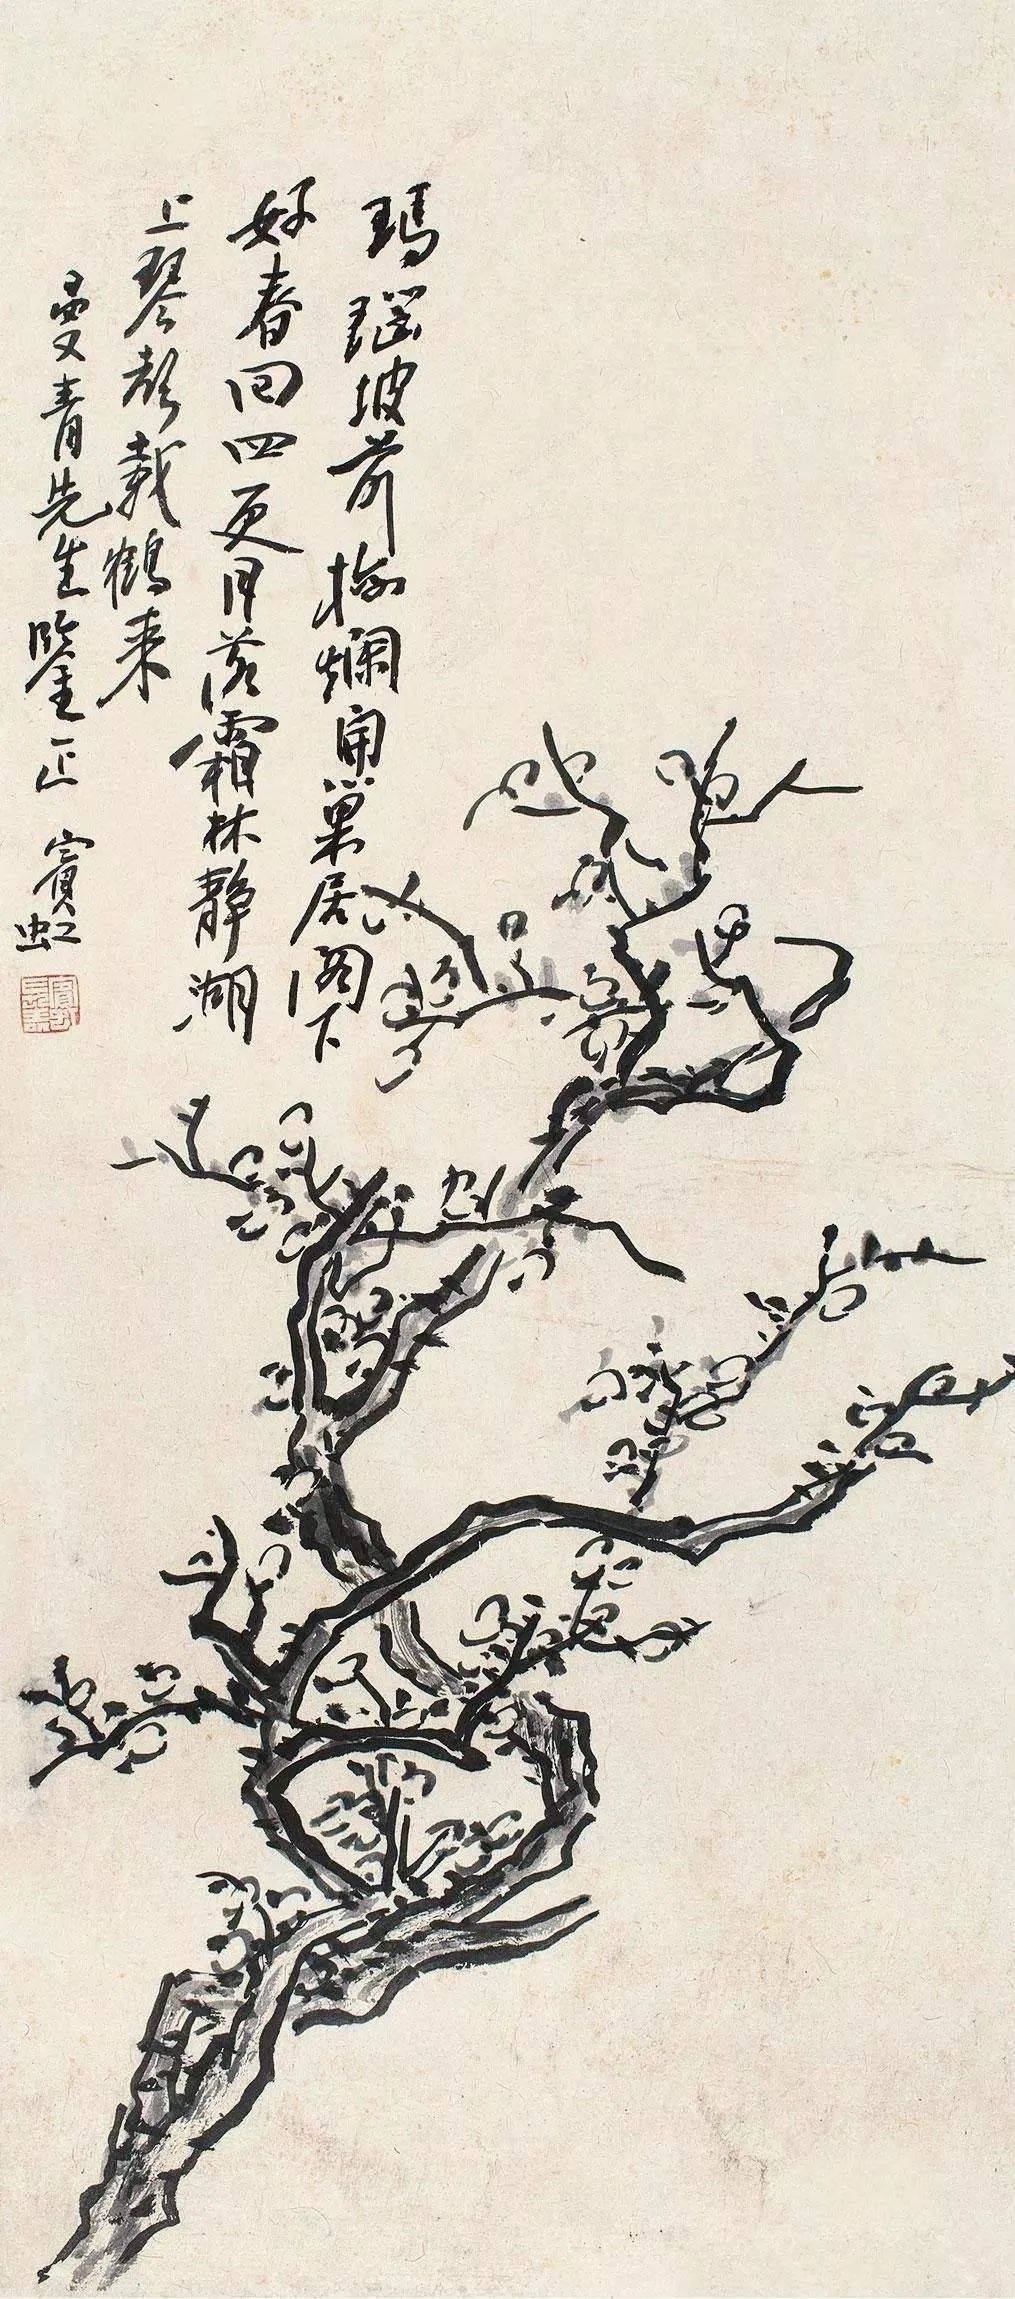 瑪瑙坡前梅爛開巢居閣下
好春回四更月落霜林靜湖
上琴聲載鶴来
曼青先生鑒正 賓虹